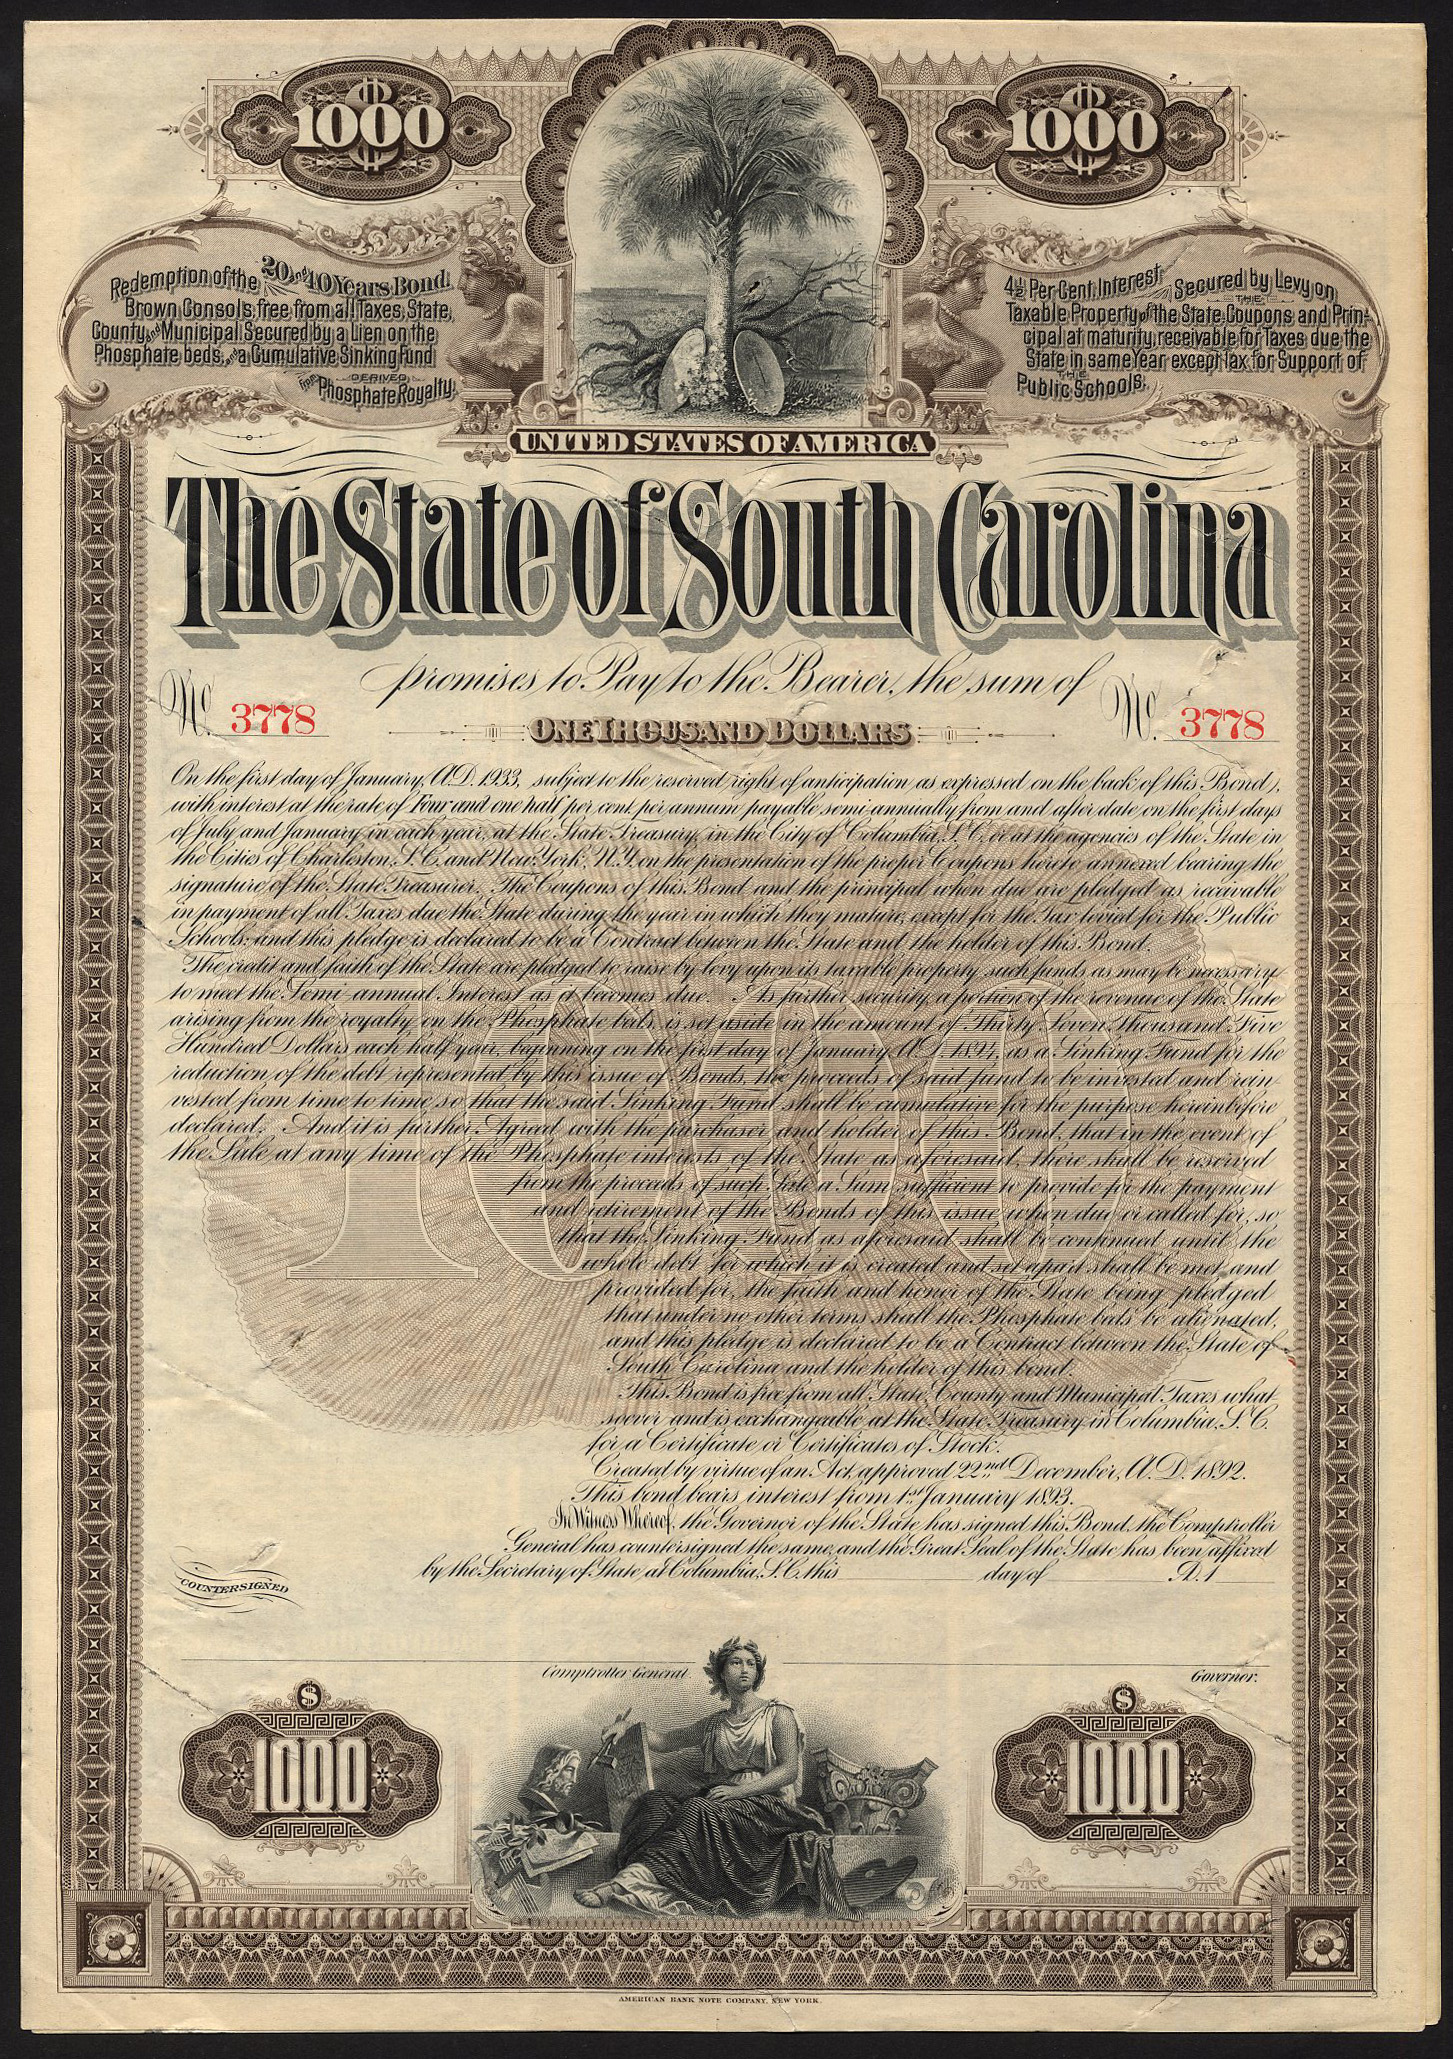 $1000
$1000
Redemption of the 20 and 40 Years Bond.
Brown Consols, free from all Taxes, State,
County and Municipal. Secured by a Lien on the
Phosphate beds, and a Cumulative Sinking Fund
from DERIVED Phosphate Royalty.
4½ Per Cent. Interest Secured by Levy on
Taxable Property of THE State. Coupons and Prin-
cipal at maturity, receivable for Taxes due the
State in same Year except Tax for Support of
THE Public Schools.
UNITED STATES OF AMERICA
The State of South Carolina
promises to Pay to the Bearer, the sum of
No. 3778
No. 3778
ONE THOUSAND DOLLARS
On the first day of January, A.D. 1933, subject to the reserved right of anticipation as expressed on the back of this Bond,
with interest at the rate of Four and one half per cent per annum payable semi-annually from and after date on the first days
of July and January in each year, at the State Treasury, in the City of Columbia, S.C. or at the agencies of the State in
the Cities of Charleston, S.C. and New York, N.Y. on the presentation of the proper Coupons hereto annexed bearing the
signature of the State Treasurer. The Coupons of this Bond and the principal when due are pledged as receivable
in payment of all Taxes due the State during the year in which they mature, except for the Tax levied for the Public
Schools; and this pledge is declared to be a Contract between the State and the holder of this Bond.
The credit and faith of the State are pledged to raise by levy upon its taxable property such funds as may be necessary
to meet the Semi-annual Interest as it becomes due. As further security, a portion of the revenue of the State
arising from the royalty on the Phosphate beds, is set aside in the amount of Thirty Seven Thousand Five
Hundred Dollars each half year, beginning on the first day of January A.D. 1894, as a Sinking Fund for the
reduction of the debt represented by this issue of Bonds, the proceeds of said fund to be invested and rein-
vested from time to time, so that the said Sinking Fund shall be cumulative for the purpose hereinbefore
declared. And it is further Agreed with the purchaser and holder of this Bond, that in the event of
the Sale at any time of the Phosphate interests of the State as aforesaid, there shall be reserved
from the proceeds of such Sale a Sum sufficient to provide for the payment
and retirement of the Bonds of this issue when due or called for, so
that the Sinking Fund as aforesaid shall be continued until the
whole debt for which it is created and set apart shall be met and
provided for, the faith and honor of the State being pledged
that under no other terms shall the Phosphate beds be alienated,
and this pledge is declared to be a Contract between the State of
South Carolina and the holder of this bond.
This Bond is free from all State, County and Municipal Taxes what-
soever and is exchangeable at the State Treasury in Columbia, S.C.
for a Certificate or Certificates of Stock.
Created by virtue of an Act, approved 22nd December, A.D. 1892.
This bond bears interest from 1st January 1893.
In Witness Whereof, the Governor of the State has signed this Bond, the Comptroller
General has countersigned the same, and the Great Seal of the State has been affixed
by the Secretary of State at Columbia, S.C. this day of A.D. 1
1000
COUNTERSIGNED
Comptroller General.
Governor.
$
1000
$
1000
AMERICAN BANK NOTE COMPANY, NEW YORK.